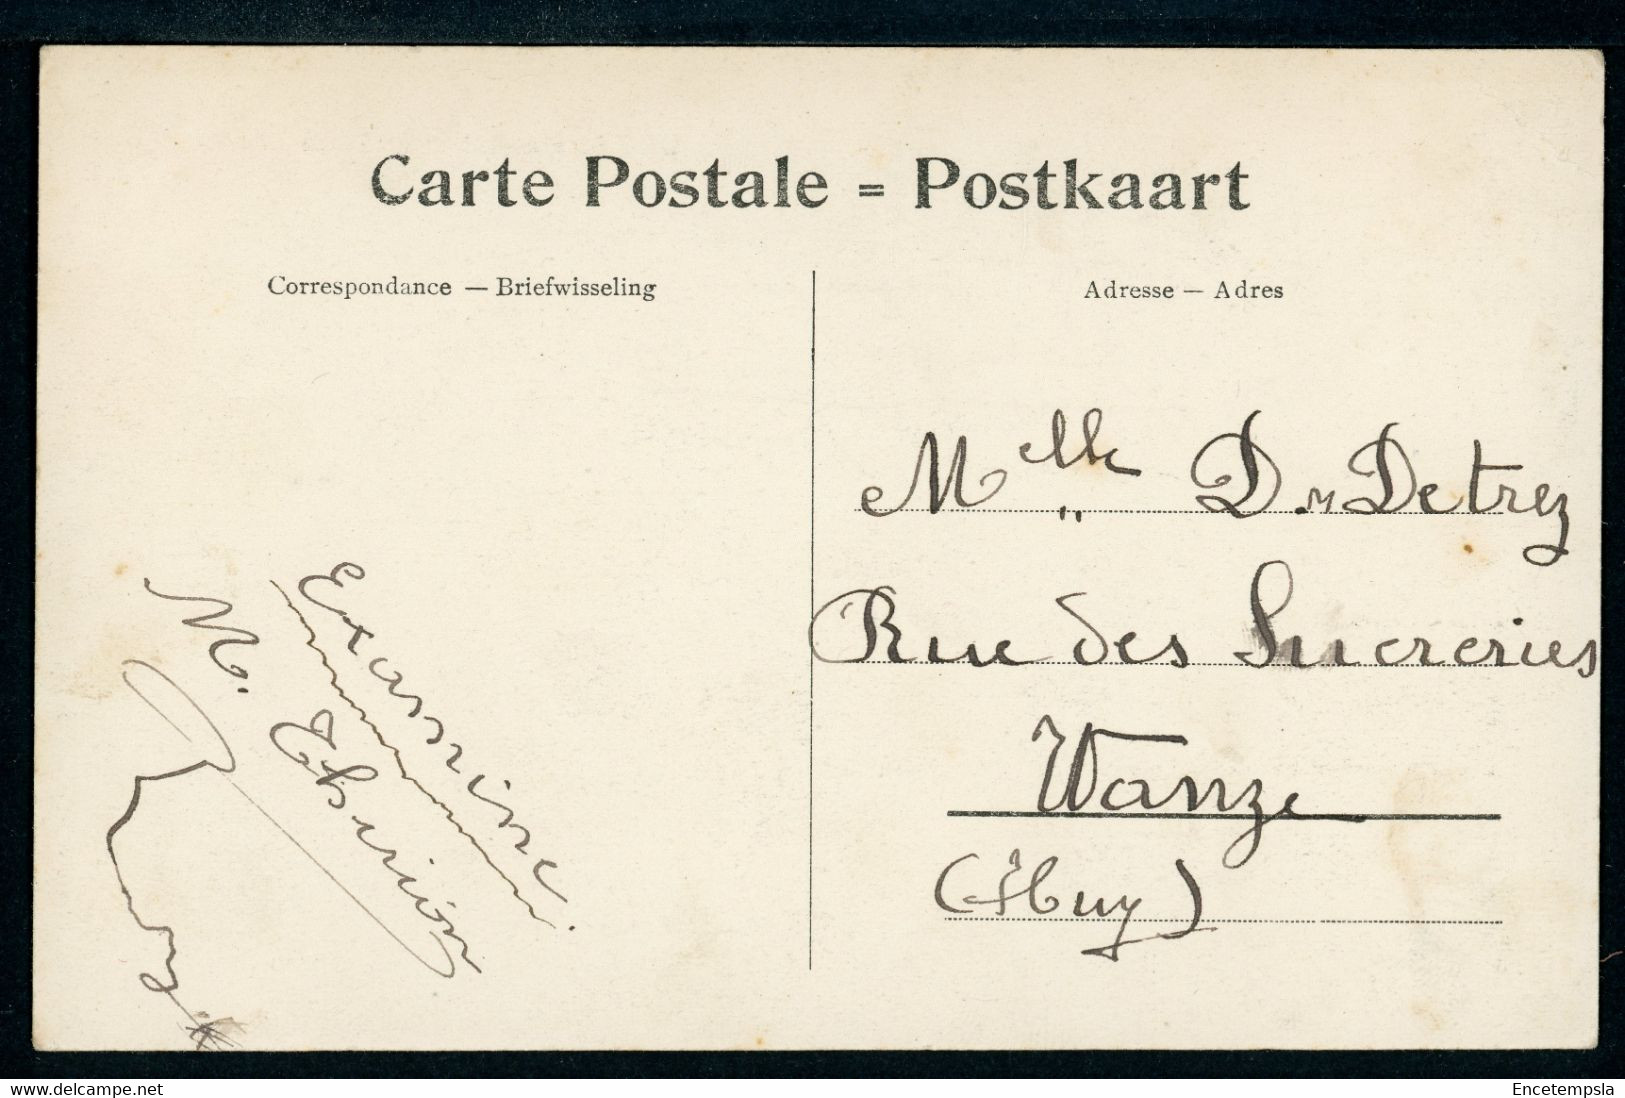 Carte Postale = Postkaart
Correspondance — Briefwisseling
Adresse — Adres
Examine.
M. Thirion
Melle D. Detrez
Rue des Sucreries
Wanze
(Huy)
www.delcampe.net
Encetempsla